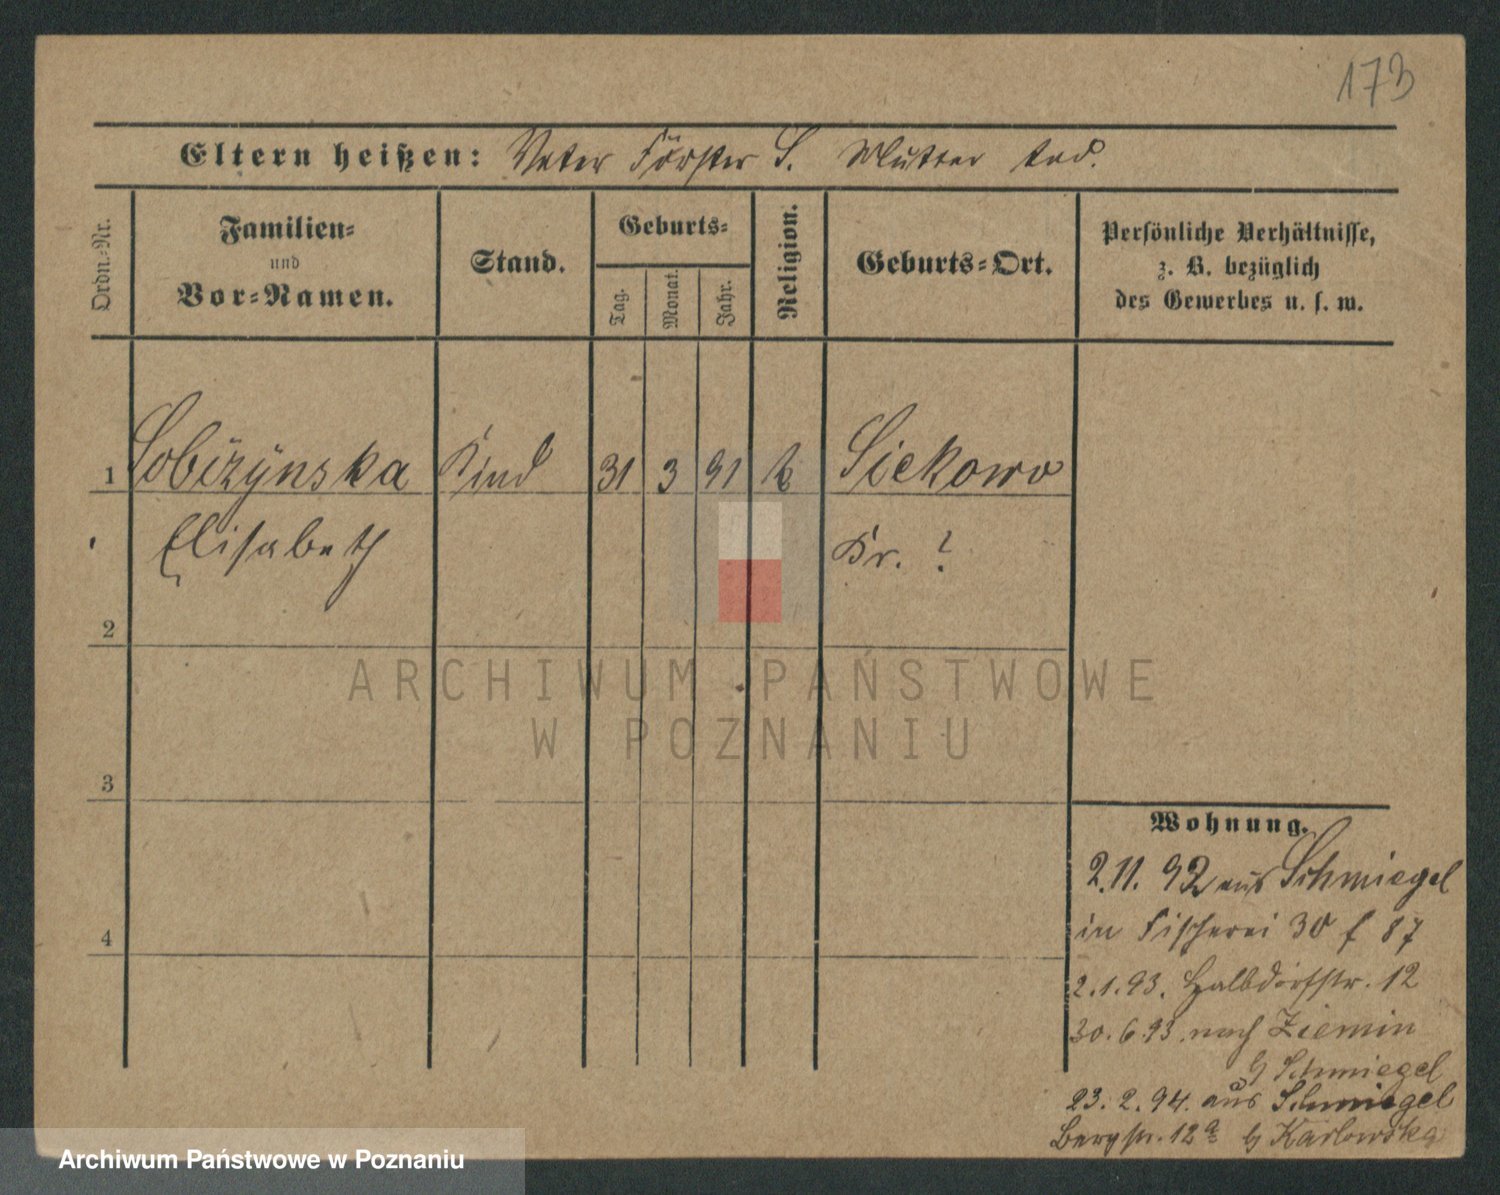 173
Eltern heißen: Vater Förster S. Mutter tod.
Ordn.-Nr.
Familien-
und
Vor-Namen.
Stand.
Geburts-
Tag.
Monat.
Jahr.
Religion.
Geburts-Ort.
Persönliche Verhältnisse,
z. B. bezüglich
des Gewerbes u. s. w.
1 Sobizÿnska Kind 31 3 91 k Siekowo
Elisabeth Kr. ?
2
3
4
ARCHIWUM PAŃSTWOWE
W POZNANIU
Wohnung.
2.11.92 aus Schmiegel
in Fischerei 30 f 87
2.1.93. Halbdorfstr. 12
30.6.93. nach Ziemin
b/ Schmiegel
23.2.94. aus Schmiegel
Bergstr. 12a b/ Karlowska
Archiwum Państwowe w Poznaniu